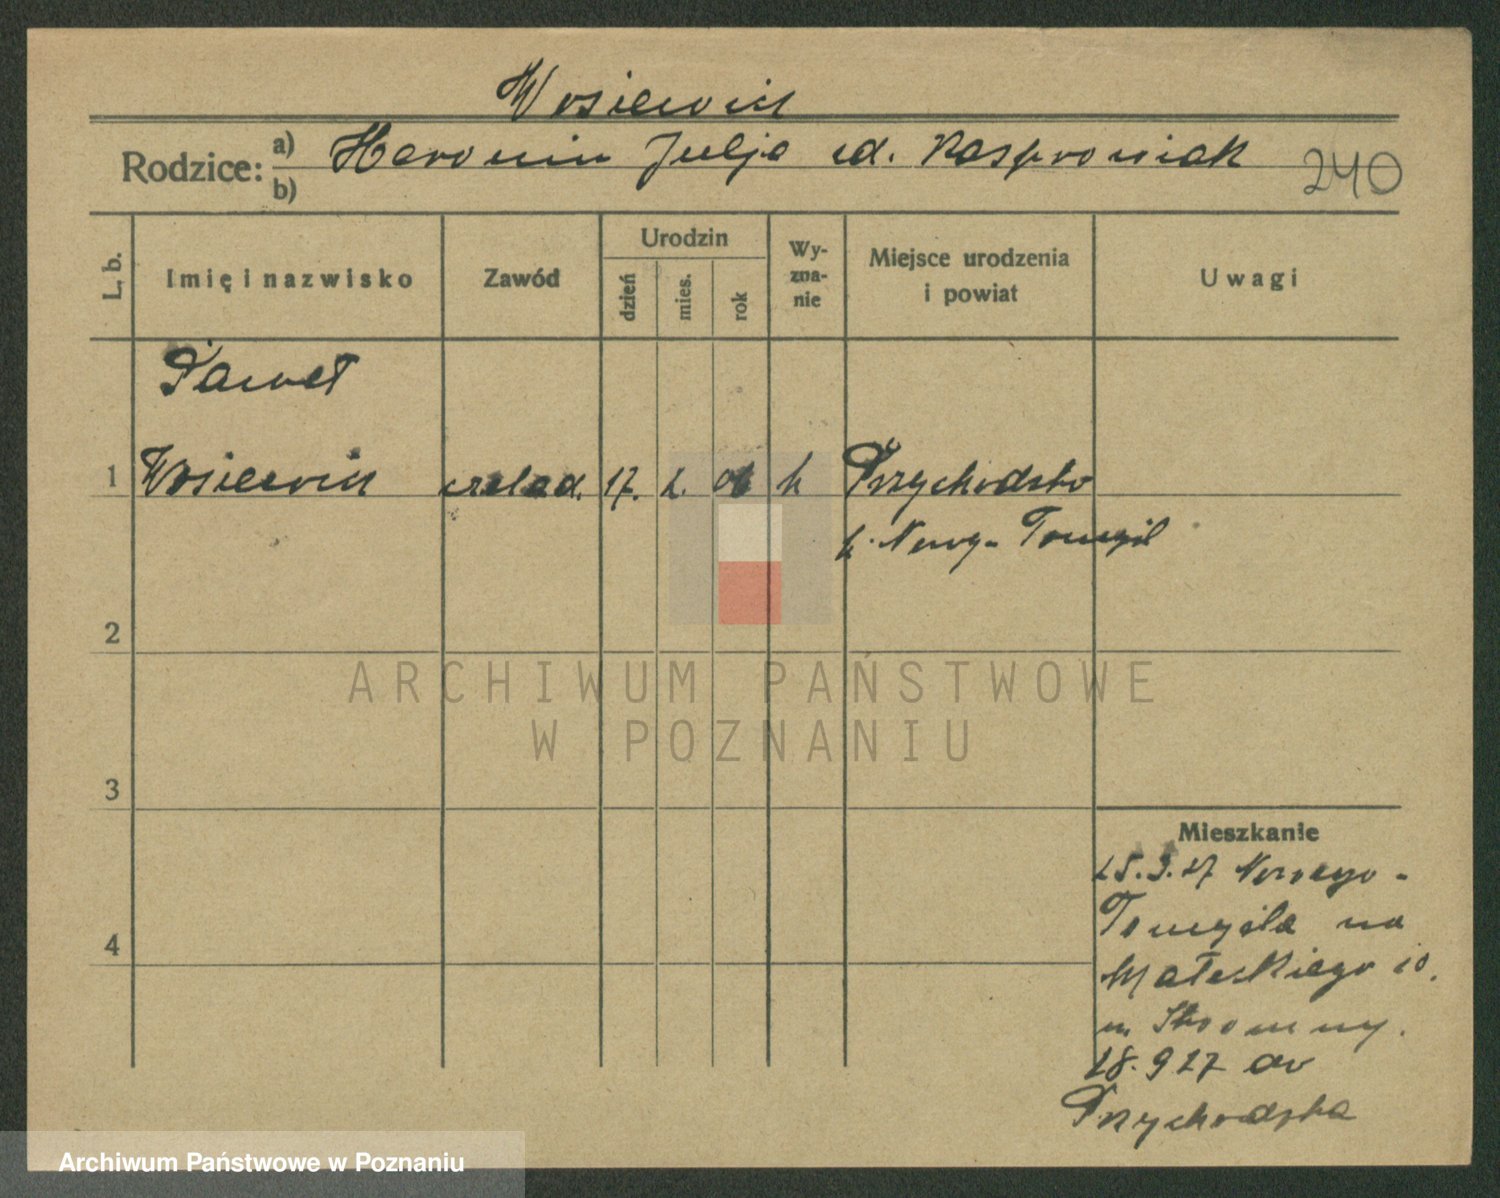 Wosiewicz
Rodzice: a) Heronim Julja zd. Kasprowiak
b)
240
L. b. Imię i nazwisko Zawód Urodzin dzień mies. rok Wy-zna-nie Miejsce urodzenia i powiat Uwagi
Paweł
1 Wosiewicz czelad. 17. k Przychodzko
p. Nowy-Tomyśl
2
3
4
Mieszkanie
25.3.27 Nowego-
Tomyśla na
Małeckiego 10.
m. Skromny.
28.9 27 do
Przychodzka
ARCHIWUM PAŃSTWOWE
W POZNANIU
Archiwum Państwowe w Poznaniu